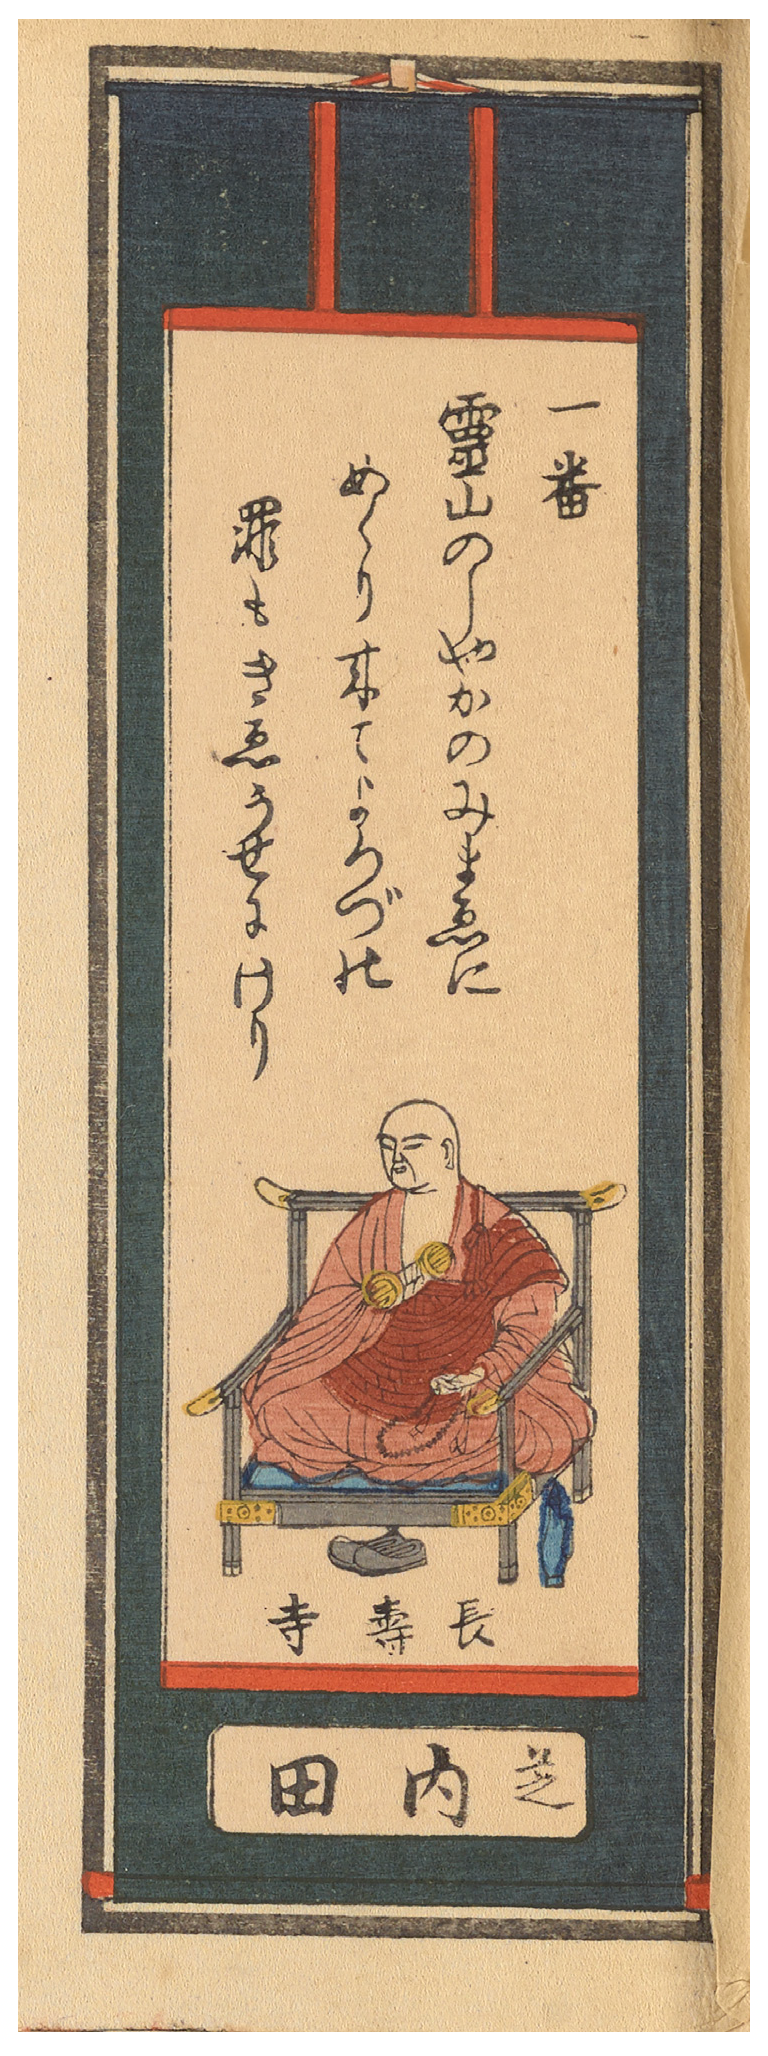 一番
霊山のしやかのみまゑに
めくり来てよろづの
罪もきゑうせにけり
長壽寺
芝
内田